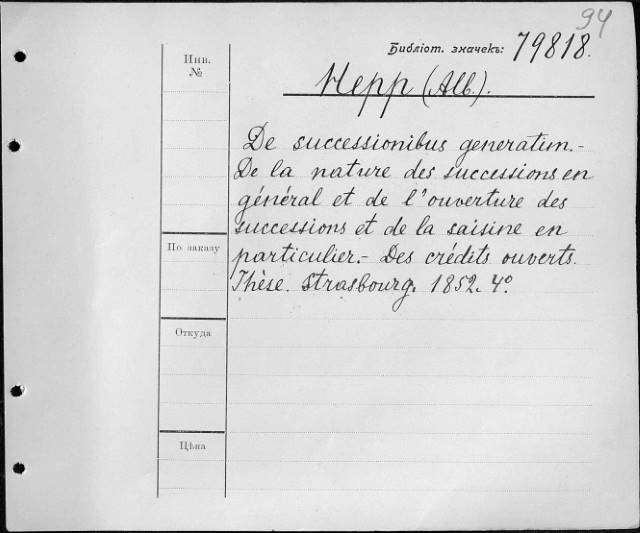 94
Библіот. значекъ: 79818.
Инв.
№
Hepp (Alb.).
De successionibus generatim.-
De la nature des successions en
général et de l'ouverture des
successions et de la saisine en
particulier.- Des crédits ouverts.
Thèse. Strasbourg. 1852. 4º.
По заказу
Откуда
Цѣна